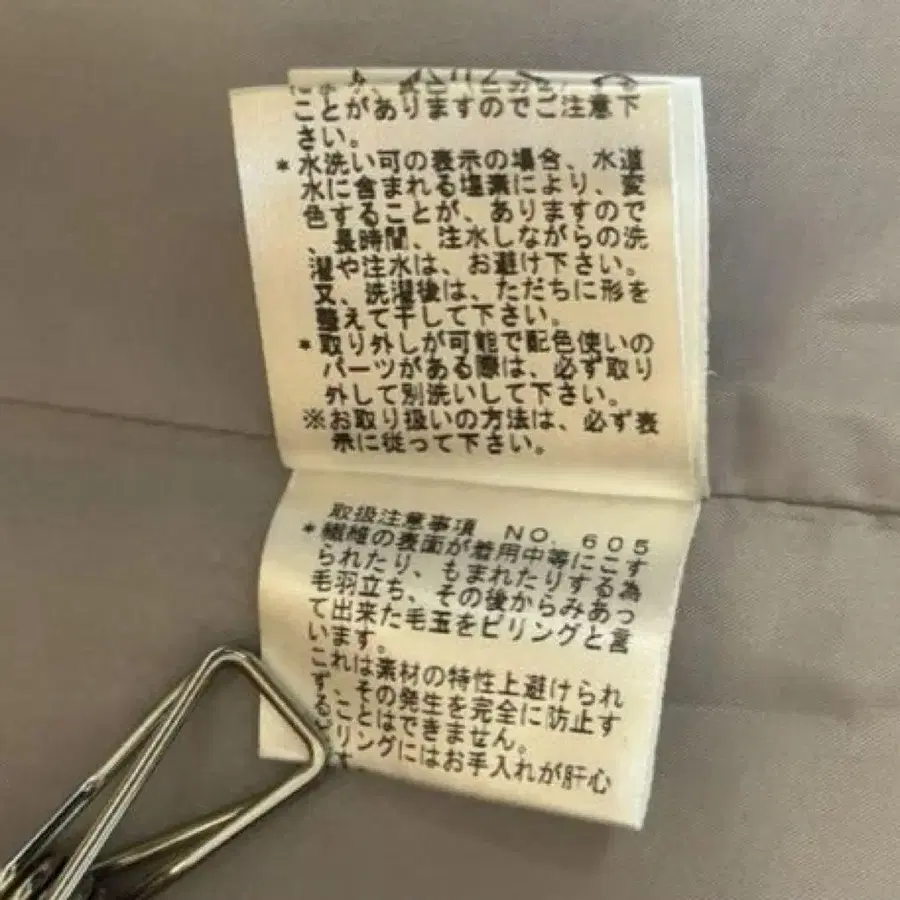 ことがありますのでご注意下
さい。
*水洗い可の表示の場合、水道
水に含まれる塩素により、変
色することが、ありますので
、長時間、注水しながらの洗
濯や注水は、お避け下さい。
又、洗濯後は、ただちに形を
整えて干して下さい。
*取り外しが可能で配色使いの
パーツがある際は、必ず取り
外して別洗いして下さい。
※お取り扱いの方法は、必ず表
示に従って下さい。
取扱注意事項 NO. 605
*繊維の表面が着用中等にこす
られたり、もまれたりする為
毛羽立ち、その後からみあっ
て出来た毛玉をピリングと言
います。
これは素材の特性上避けられ
ず、その発生を完全に防止す
ることはできません。
ピリングにはお手入れが肝心